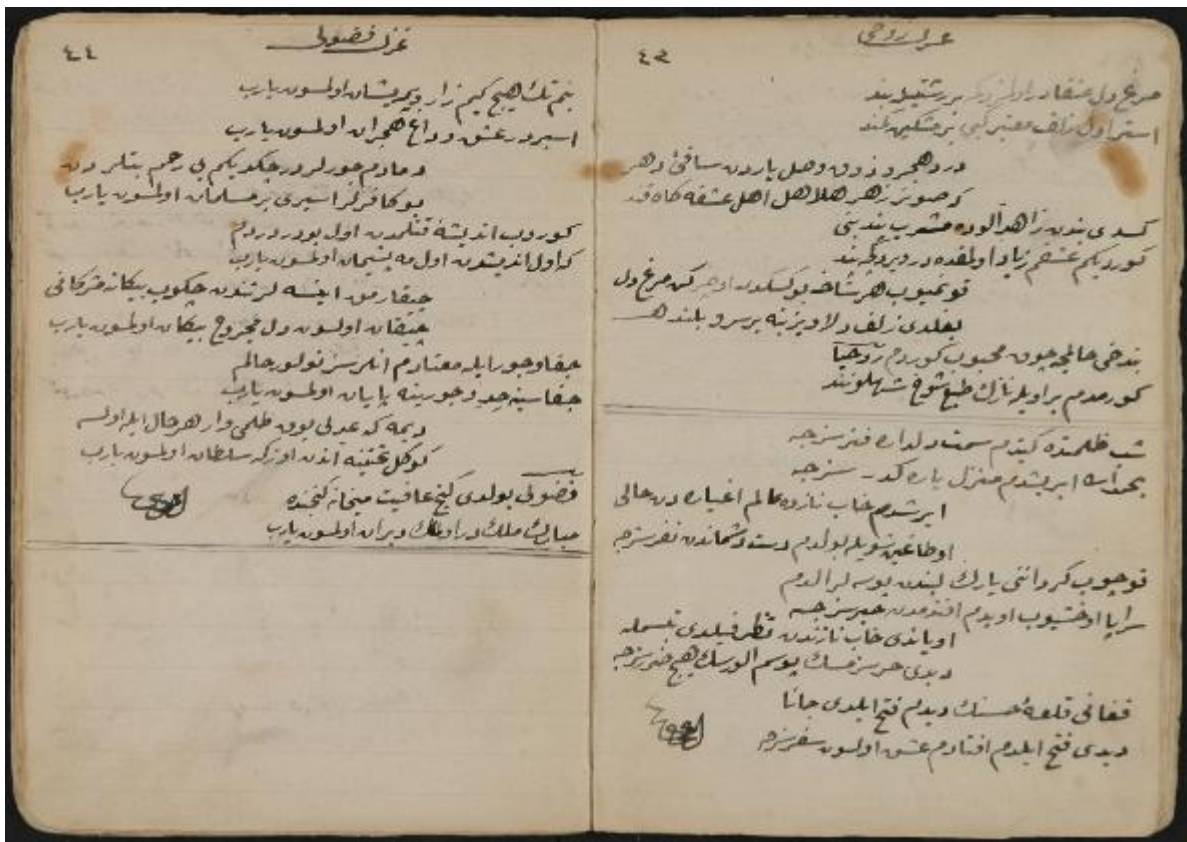 ٤٣
غزل روحی
مرغ دل عنقا در اولمز هر بر رشتیله بند
استر اول زلف معنبر کبی بر مشکین کمند
درد هجر و ذوق وصل یاردن ساقئ دهر
که صونر زهر هلاهل اهل عشقه کاه قند
کسدی بندن زاهد آلوده مشرب بندینی
کوردیکم عشقم زیاد اولمقده در ویردکجه بند
قونمیوب هر شاخه یوکسکدن اوچرکن مرغ دل
بغلدی زلف دلاویزینه بر سرو بلند
بندخی عالمده چوق محبوب کوردم روحیا
کورمدم بر اویله نازك طبع شوخ شهلوند
شب ظلمتده کیتدم سمت دلداره فنرسزجه
بحمدالله ایریشدم منزل یاره کدرسزجه
ایرشدم خاب نازده عالم اغیاردن خالی
اوطاغین شویله بولدم دست دشماندن نفرسزجه
قوچوب کردانی یارك لبندن بوسه لر الدم
سراپا اوخشیوب اوپدم افندمدن خبرسزجه
اویاندی خاب نازندن نظر قیلدی تبسمله
دیدی خرسزمیسك بوسم الورسك هیچ خبرسزجه
فغانی قلعهٔ حسنك دیدم فتح ایلدی جانا
دیدی فتح ایلدم افتادم عشق اولسون سفرسزجه
٤٤
غزل فضولی
بنم تك هیچ کیم زار و پریشان اولمسون یارب
اسیر درد عشق و داغ هجران اولمسون یارب
دمادم جورلردر چکدیکم بی رحم بتلردن
بو کافرلر اسیری بر مسلمان اولمسون یارب
کوروب اندیشهٔ قتلمده اول بودر دردم
که اول اندیشه‌دن اول مه پشیمان اولمسون یارب
چیقارمق ایتسه لر تندن چکوب پیکانه مژکانی
چیقان اولسون دل مجروح پیکان اولمسون یارب
جفا و جور ایله معتادم انلرسز نولور حالم
جفاسینه حد و جورینه پایان اولمسون یارب
دیمه که عدلی یوق ظلمی وار هر حال ایله اولسه
کوکل تختینه اندن اوزکه سلطان اولمسون یارب
فضولی بولدی کنج عافیت میخانه کنجنده
مبارك ملك در اول ملك ویران اولمسون یارب